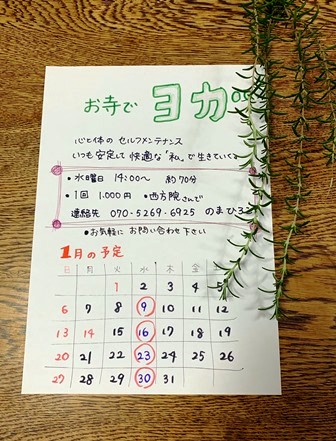 お寺で ヨガ
心と体の セルフメンテナンス
いつも安定して 快適な"私"で生きていくよ
・水曜日 14:00〜 約70分
・1回 1.000円 ・西方院さんで
連絡先 070-5269-6925 のまひろこ
・お気軽に お問い合わせ下さい
1月の予定
日 月 火 水 木 金 土
1 2 3 4 5
6 7 8 9 10 11 12
13 14 15 16 17 18 19
20 21 22 23 24 25 26
27 28 29 30 31